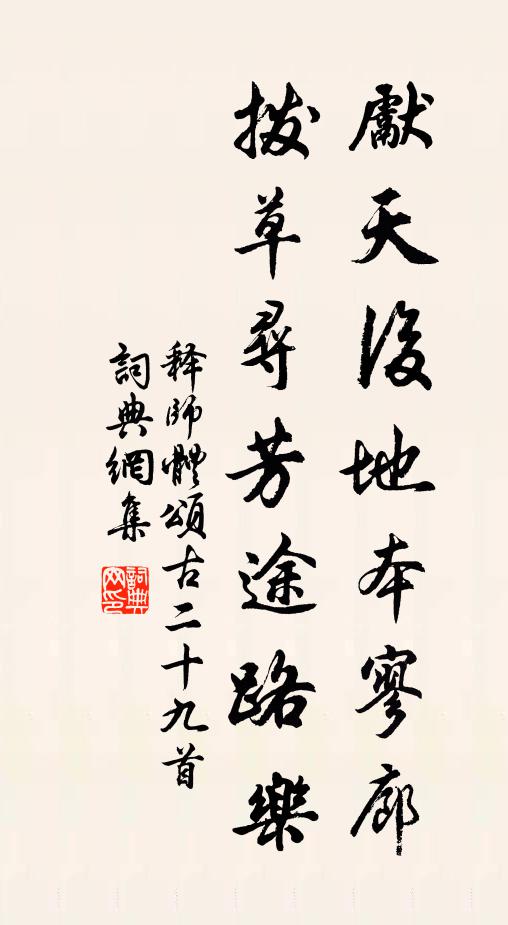 獻天後地本寥廊
撥草尋芳途路樂
释師體頌古二十九首
詞典網集
詞典网印